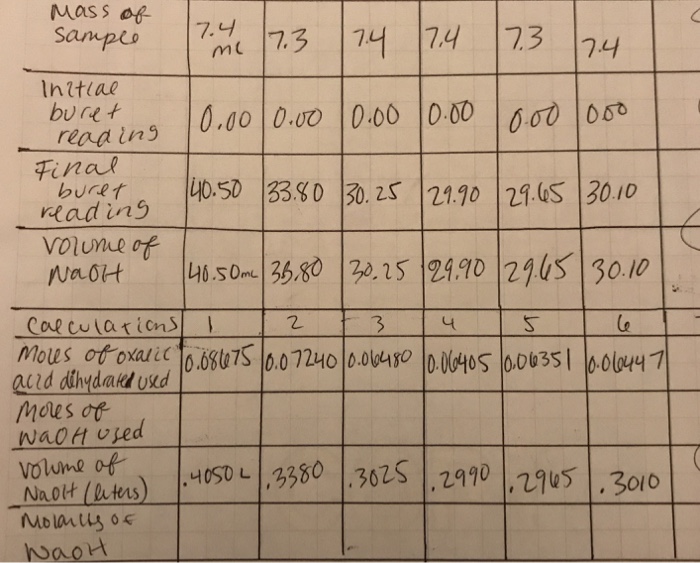 Mass of
sample 7.4 mL 7.3 7.4 7.4 7.3 7.4
Initial
buret
reading 0.00 0.00 0.00 0.00 0.00 0.00
Final
buret
reading 40.50 33.80 30.25 29.90 29.65 30.10
Volume of
NaOH 40.50mL 33.80 30.25 29.90 29.65 30.10
Calculations 1 2 3 4 5 6
Moles of oxalic
acid dihydrated used 0.08675 0.07240 0.06480 0.06405 0.06351 0.06447
Moles of
NaOH used
Volume of
NaOH (liters) .4050 L .3380 .3025 .2990 .2965 .3010
Molarity of
NaOH